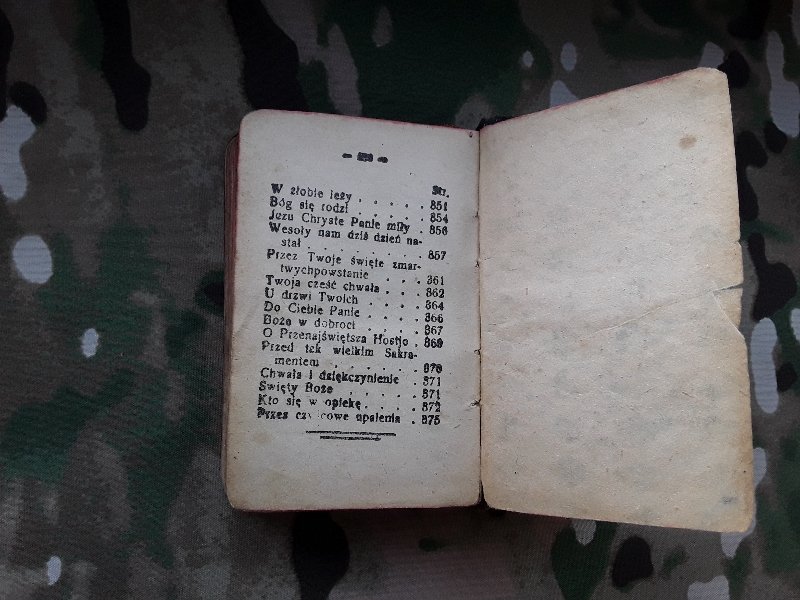 Str.
W złobie leży . . . . . 851
Bóg się rodzi . . . . . 854
Jezu Chryste Panie miły . 856
Wesoły nam dziś dzień na-
stał . . . . . . . . 857
Przez Twoje święte zmar-
twychpowstanie . . . 861
Twoja cześć chwała . . . 862
U drzwi Twoich . . . . 864
Do Ciebie Panie . . . . 866
Boże w dobroci . . . . 867
O Przenajświętsza Hostjo . 869
Przed tek wielkim Sakra-
mentem . . . . . . 870
Chwała i dziękczynienie . 871
Święty Boże . . . . . 871
Kto się w opiekę . . . . 872
Przez czyścowe upalenia . 875